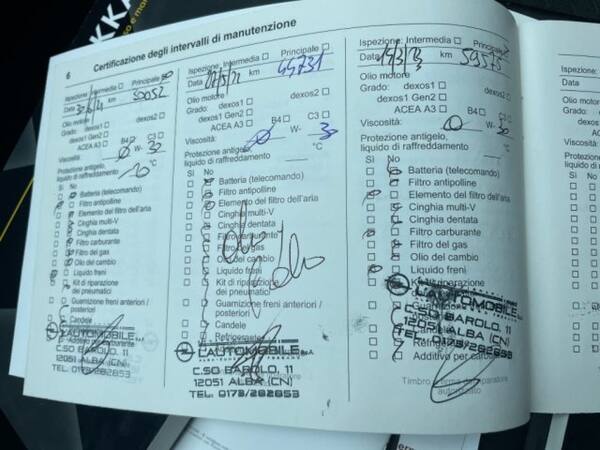 KKA
6 Certificazione degli intervalli di manutenzione
Ispezione: Intermedia □ Principale
Data km 39052
Olio motore
Grado: dexos1 □
dexos1 Gen2 □
ACEA A3 □ B4 □ C3 □
Viscosità: 0 W- 30
Protezione antigelo,
liquido di raffreddamento °C
Sì No
□ □ Batteria (telecomando)
□ □ Filtro antipolline
□ □ Elemento del filtro dell'aria
□ □ Cinghia multi-V
□ □ Cinghia dentata
□ □ Filtro carburante
□ □ Filtro del gas
□ □ Olio del cambio
□ □ Liquido freni
□ □ Kit di riparazione
dei pneumatici
□ □ Guarnizione freni anteriori /
posteriori
□ □ Candele
L'AUTOMOBILE
C.SO BAROLO, 11
12051 ALBA (CN)
TEL. 0173/282853
Ispezione: Intermedia □ Principale □
Data km 49731
Olio motore
Grado: dexos1 □ dexos2 □
dexos1 Gen2 □
ACEA A3 □ B4 □ C3 □
Viscosità: 0 W- 30
Protezione antigelo,
liquido di raffreddamento °C
Sì No
□ □ Batteria (telecomando)
□ □ Filtro antipolline
□ □ Elemento del filtro dell'aria
□ □ Cinghia multi-V
□ □ Cinghia dentata
□ □ Filtro carburante
□ □ Filtro del gas
□ □ Olio del cambio
□ □ Liquido freni
□ □ Kit di riparazione
dei pneumatici
□ □ Guarnizione freni anteriori /
posteriori
□ □ Candele
□ □ Refrigerante
L'AUTOMOBILE
C.SO BAROLO, 11
12051 ALBA (CN)
TEL. 0173/282853
Ispezione: Intermedia □ Principale
Data km 59575
Olio motore
Grado: dexos1 □ dexos2 □
dexos1 Gen2 □
ACEA A3 □ B4 □ C3 □
Viscosità: 0 W- 30
Protezione antigelo,
liquido di raffreddamento °C
Sì No
□ □ Batteria (telecomando)
□ □ Filtro antipolline
□ □ Elemento del filtro dell'aria
□ □ Cinghia multi-V
□ □ Cinghia dentata
□ □ Filtro carburante
□ □ Filtro del gas
□ □ Olio del cambio
□ □ Liquido freni
□ □ Kit di riparazione
L'AUTOMOBILE
C.SO BAROLO, 11
12051 ALBA (CN)
TEL. 0173/282853
Timbro